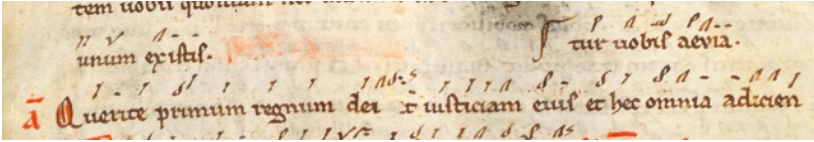 tem uobis quoniam
unum existis.
tur uobis aeuia.
a Querite primum regnum dei et iusticiam eius et hec omnia adicien